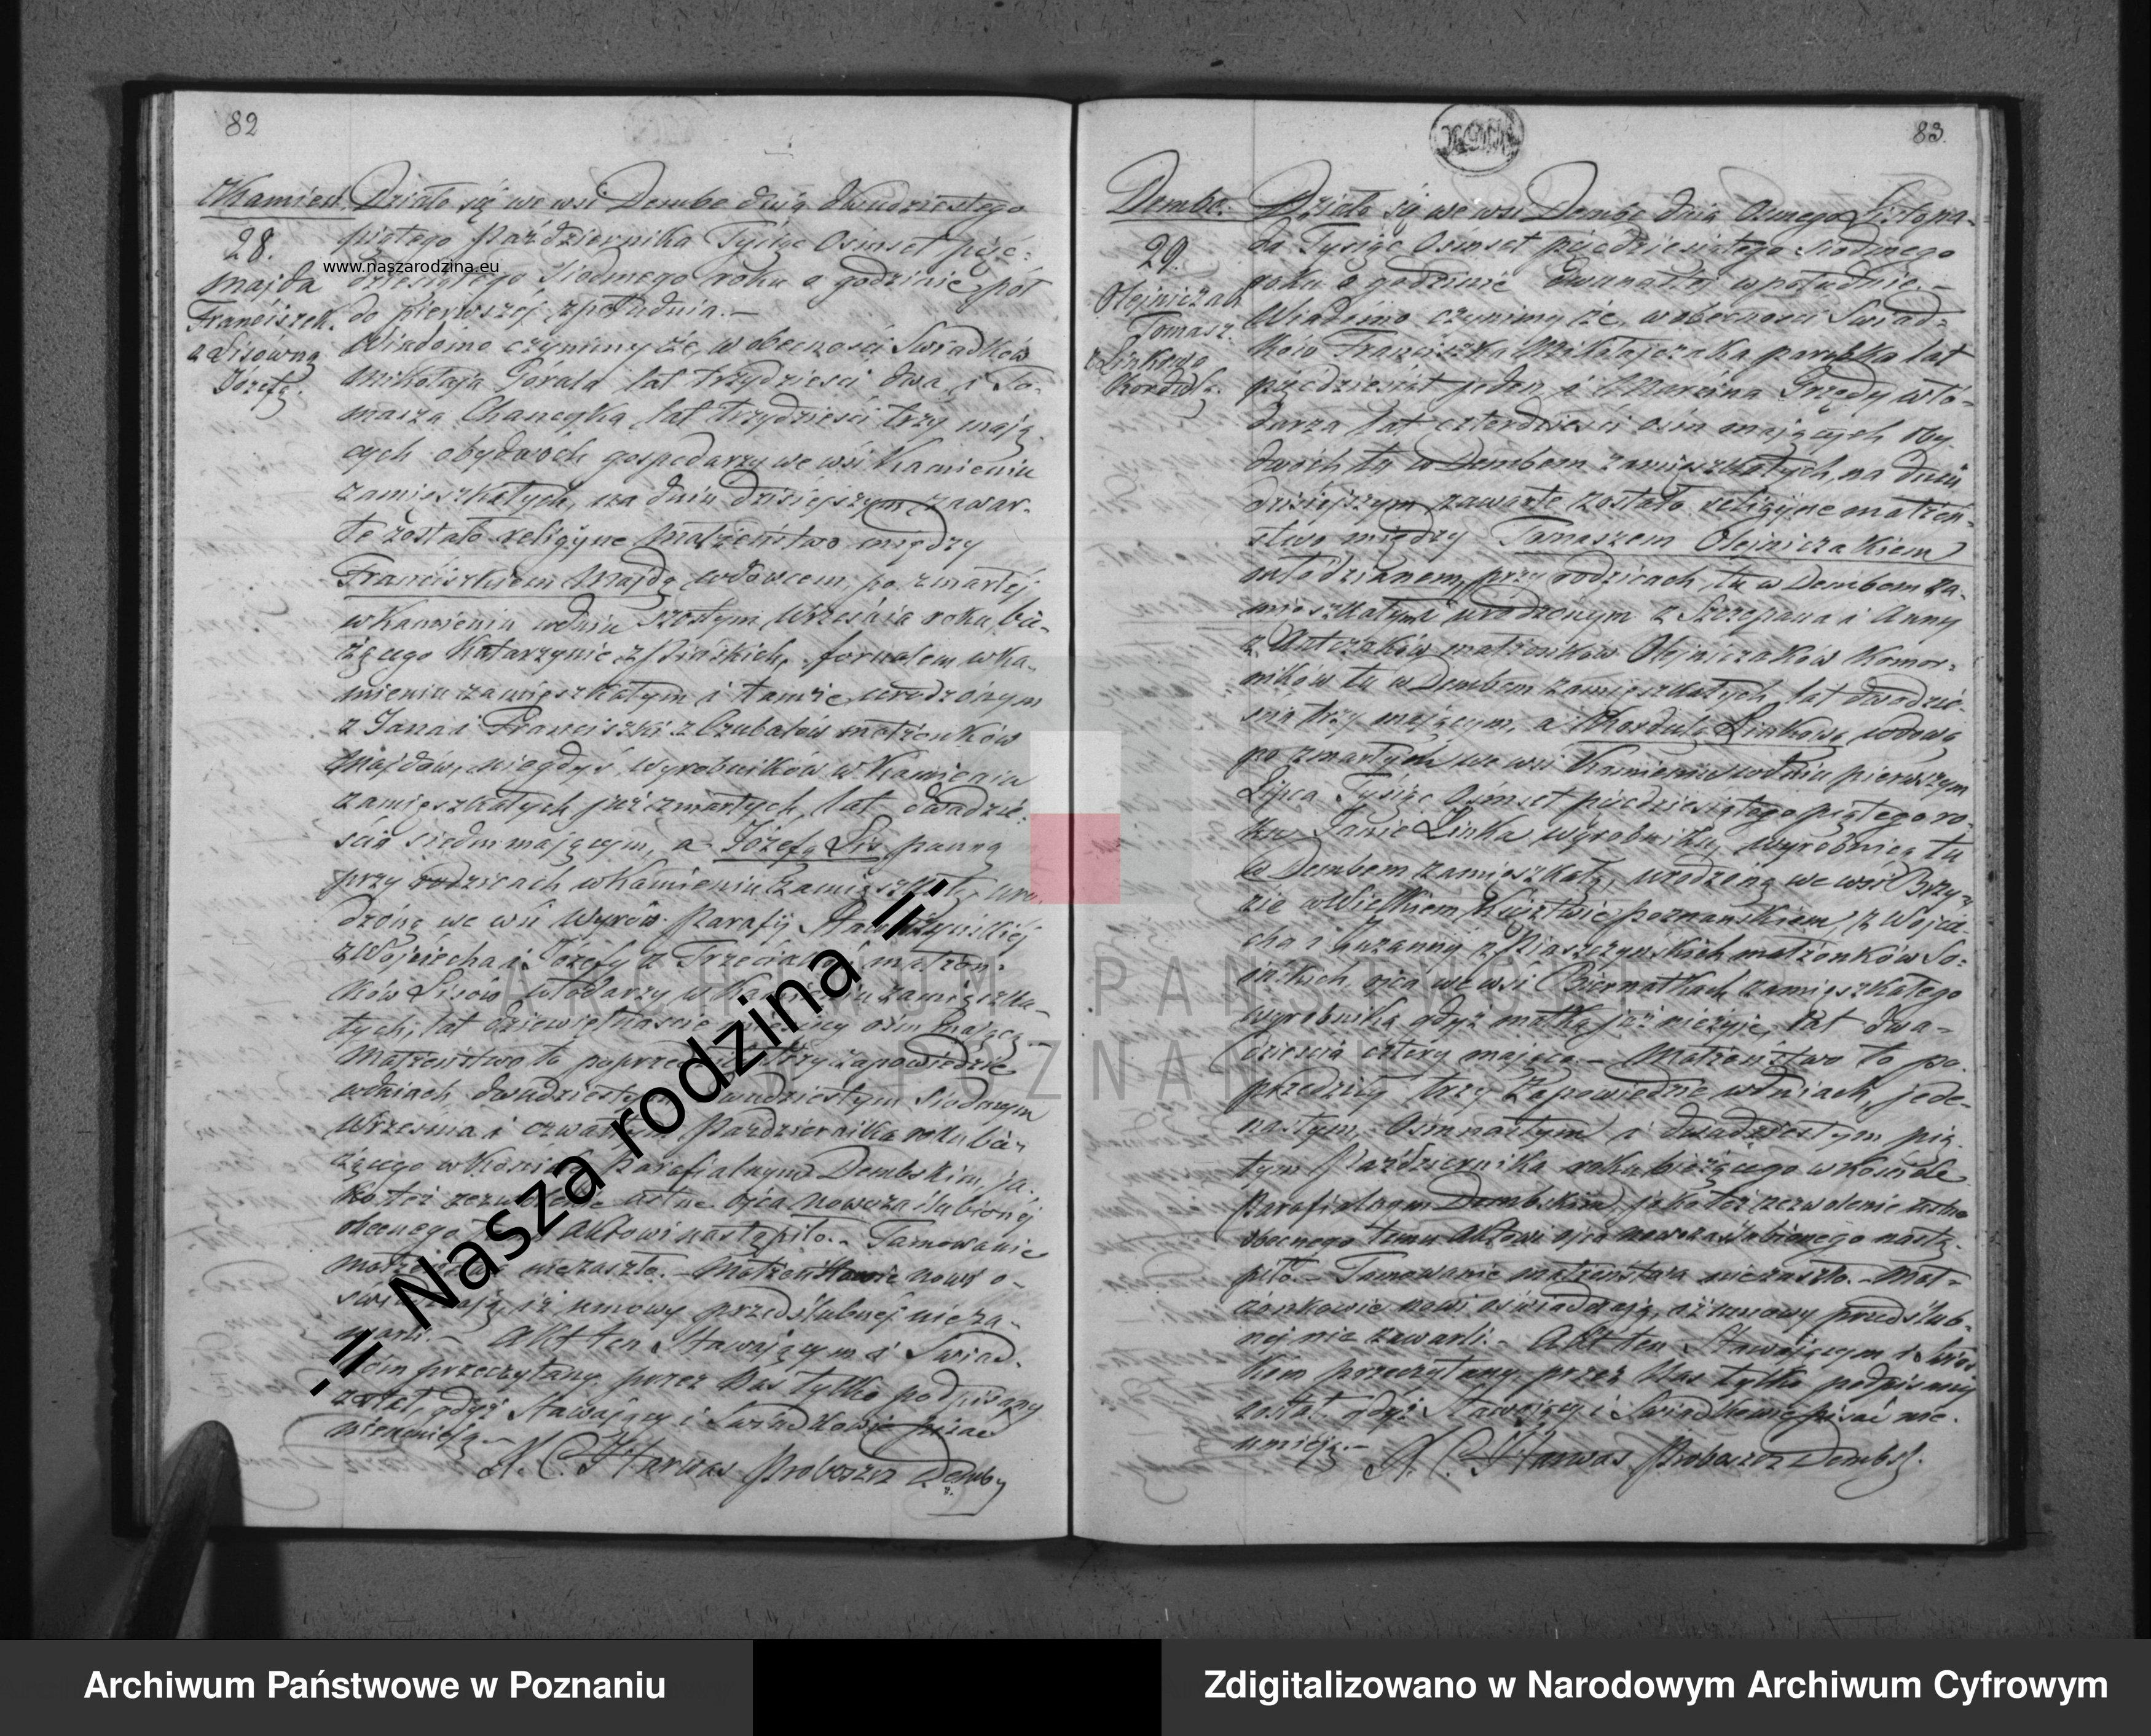 82
Kamień.
28.
Majda
Franciszek.
z Lisówną
Józefą.
Działo się we wsi Dembe dnia dwudziestego
piątego Października Tysiąc Ośmset pięć-
dziesiątego siódmego roku o godzinie pół
do pierwszej z południa.–
Wiadomo czyniemy że w obecności Świadków
Mikołaja Garala lat trzydzieści dwa, i To-
masza lat trzydzieści trzy mają-
cych obydwóch gospodarzy we wsi Kamieniu
zamieszkałych, na dniu dzisiejszym zawar-
te zostało religijne Małżeństwo między
Franciszkiem Majdą, wdowcem, po zmarłej
w Kamieniu w dniu szóstym Września roku bie-
żącego Katarzynie z fornalem w Ka-
mieniu zamieszkałym i tamże urodzonym
z Jana i Franciszki z Czubatów małżonków
Majdów, niegdyś wyrobników w Kamieniu
zamieszkałych już zmarłych, lat dwadzie-
ścia siedm mającym, a Józefą Lis, panną
przy rodzicach w Kamieniu zamieszkałą, uro-
dzoną we wsi Wyrów Parafji
z Wojciecha i Józefy z małżon-
ków Lisów włodarzy w Kamieniu zamieszka-
łych, lat dziewiętnaście miesięcy ośm mającą.–
Małżeństwo to poprzedziły trzy zapowiedzie
w dniach dwudziestym dwudziestym siódmym
Września i czwartym Października roku bie-
żącego w Kościele Parafialnym Dembskim, ja-
ko też zezwolenie ustne ojca nowozaślubionej
obecnego Aktowi nastąpiło.– Tamowanie
małżeństwa nie zaszło.– Małżonkowie nowi o-
świadczają iż umowy przedślubnej nie za-
warli.– Akt ten Stawającym i Świad-
kom przeczytany, przez Nas tylko podpisany
został, gdyż Stawający i Świadkowie pisać
nie umieją.–
X. C. Harwas Proboszcz Demby
www.naszarodzina.eu
-= Nasza rodzina =-
83.
Dembe.
29.
Olejniczak
Tomasz.
z Linkową
Kordulą.
Działo się we wsi Dembe dnia Osmego Listopa-
da Tysiąc Ośmset pięćdziesiątego siódmego
roku o godzinie dwunastej w południe.–
Wiadomo czynimy że, w obecności Świad-
ków Franciszka Mikołajczaka parobka lat
pięćdziesiąt jeden i Marcina Grzędy wło-
darza lat czterdzieści ośm mających oby-
dwóch tu w Dembem zamieszkałych, na dniu
dzisiejszym zawarte zostało religijne małżeń-
stwo między Tomaszem Olejniczakiem
młodzianem, przy rodzicach, tu w Dembem za-
mieszkałym i urodzonym z Szczepana i Anny
z Antczaków małżonków Olejniczaków komor-
ników tu w Dembem zamieszkałych, lat dwadzie-
ścia trzy mającym, a Kordulą Linkową wdową
po zmarłym we wsi Kamieniu w dniu pierwszym
Lipca Tysiąc Ośmset pięćdziesiątego piątego ro-
ku Janie Linka wyrobniku, wyrobnicą tu
w Dembem zamieszkałą, urodzoną we wsi
w Wielkiem Księztwie poznańskiem, z Wojcie-
cha i Zuzanny z Piaszczyńskich małżonków So-
ińskich, ojca we wsi Biernatkach zamieszkałego
wyrobnika gdyż matka już nie żyje, lat dwa-
dzieścia cztery mającą.– Małżeństwo to po-
przedziły trzy Zapowiedzie w dniach, jede-
nastym, ośmnastym i dwudziestym pią-
tym Października roku bieżącego w kościele
Parafialnym Dembskim, jako też zezwolenie ustne
obecnego temu aktowi ojca nowozaślubionego nastą-
piło.– Tamowanie małżeństwa nie zaszło.– Mał-
żonkowie nowi oświadczają, iż umowy przedślub-
nej nie zawarli.– Akt ten Stawającym i Świad-
kom przeczytany, przez Nas tylko podpisany
został, gdyż Stawający i Świadkowie pisać nie
umieją.–
X. C. Harwas Proboszcz Dembs.
ARCHIWUM PAŃSTWOWE
W POZNANIU
Archiwum Państwowe w Poznaniu
Zdigitalizowano w Narodowym Archiwum Cyfrowym